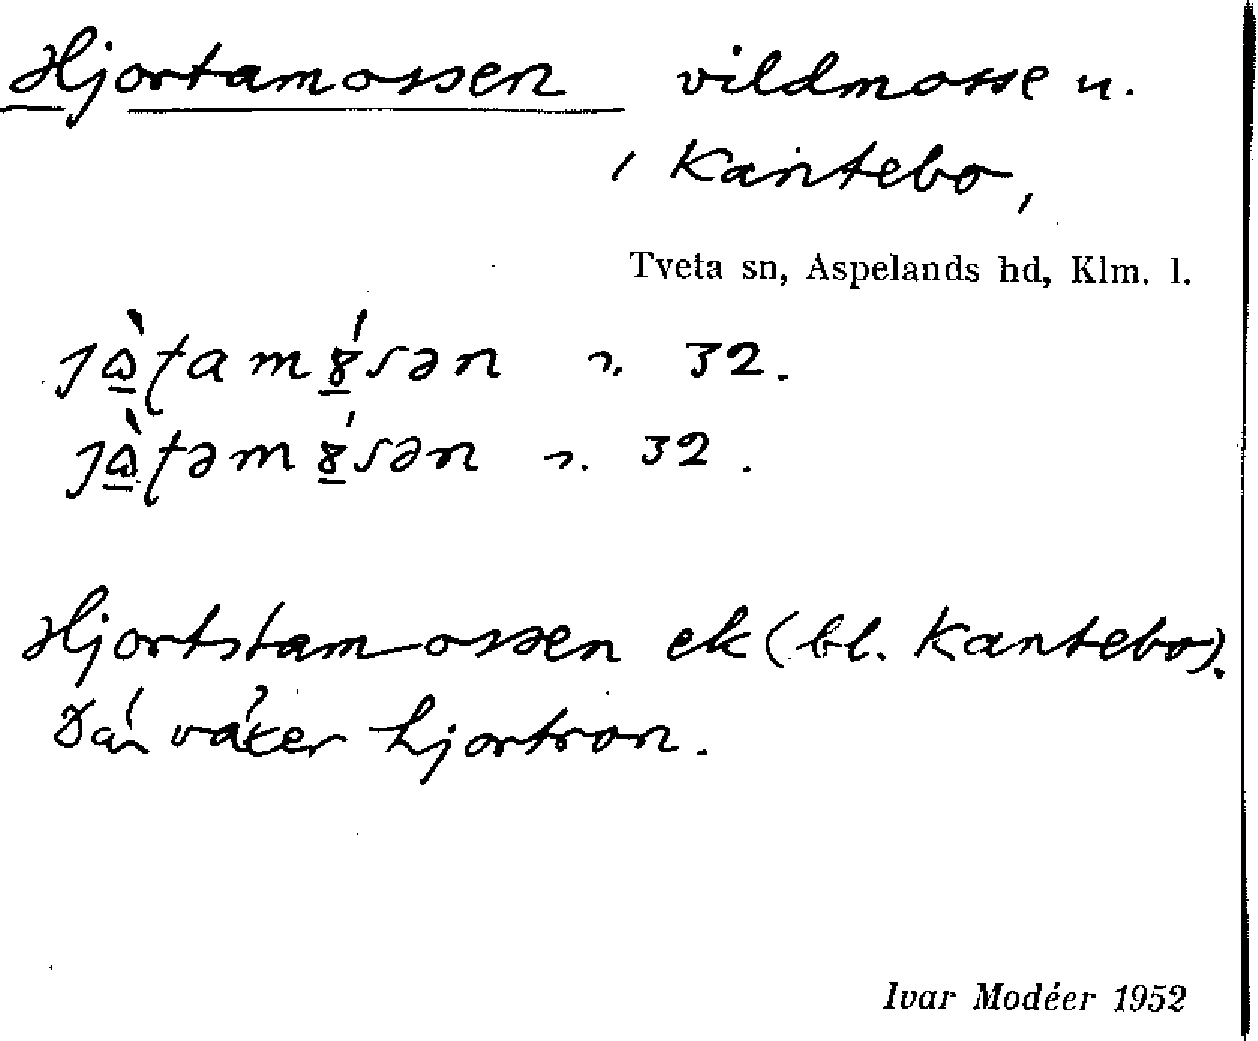 Hjortamossen vildmosse n.
i Kantebo,
Tveta sn, Aspelands hd, Klm. l.
32.
32.
Hjortstamossen ek (bl. Kantebo).
Där växer hjortron.
Ivar Modéer 1952